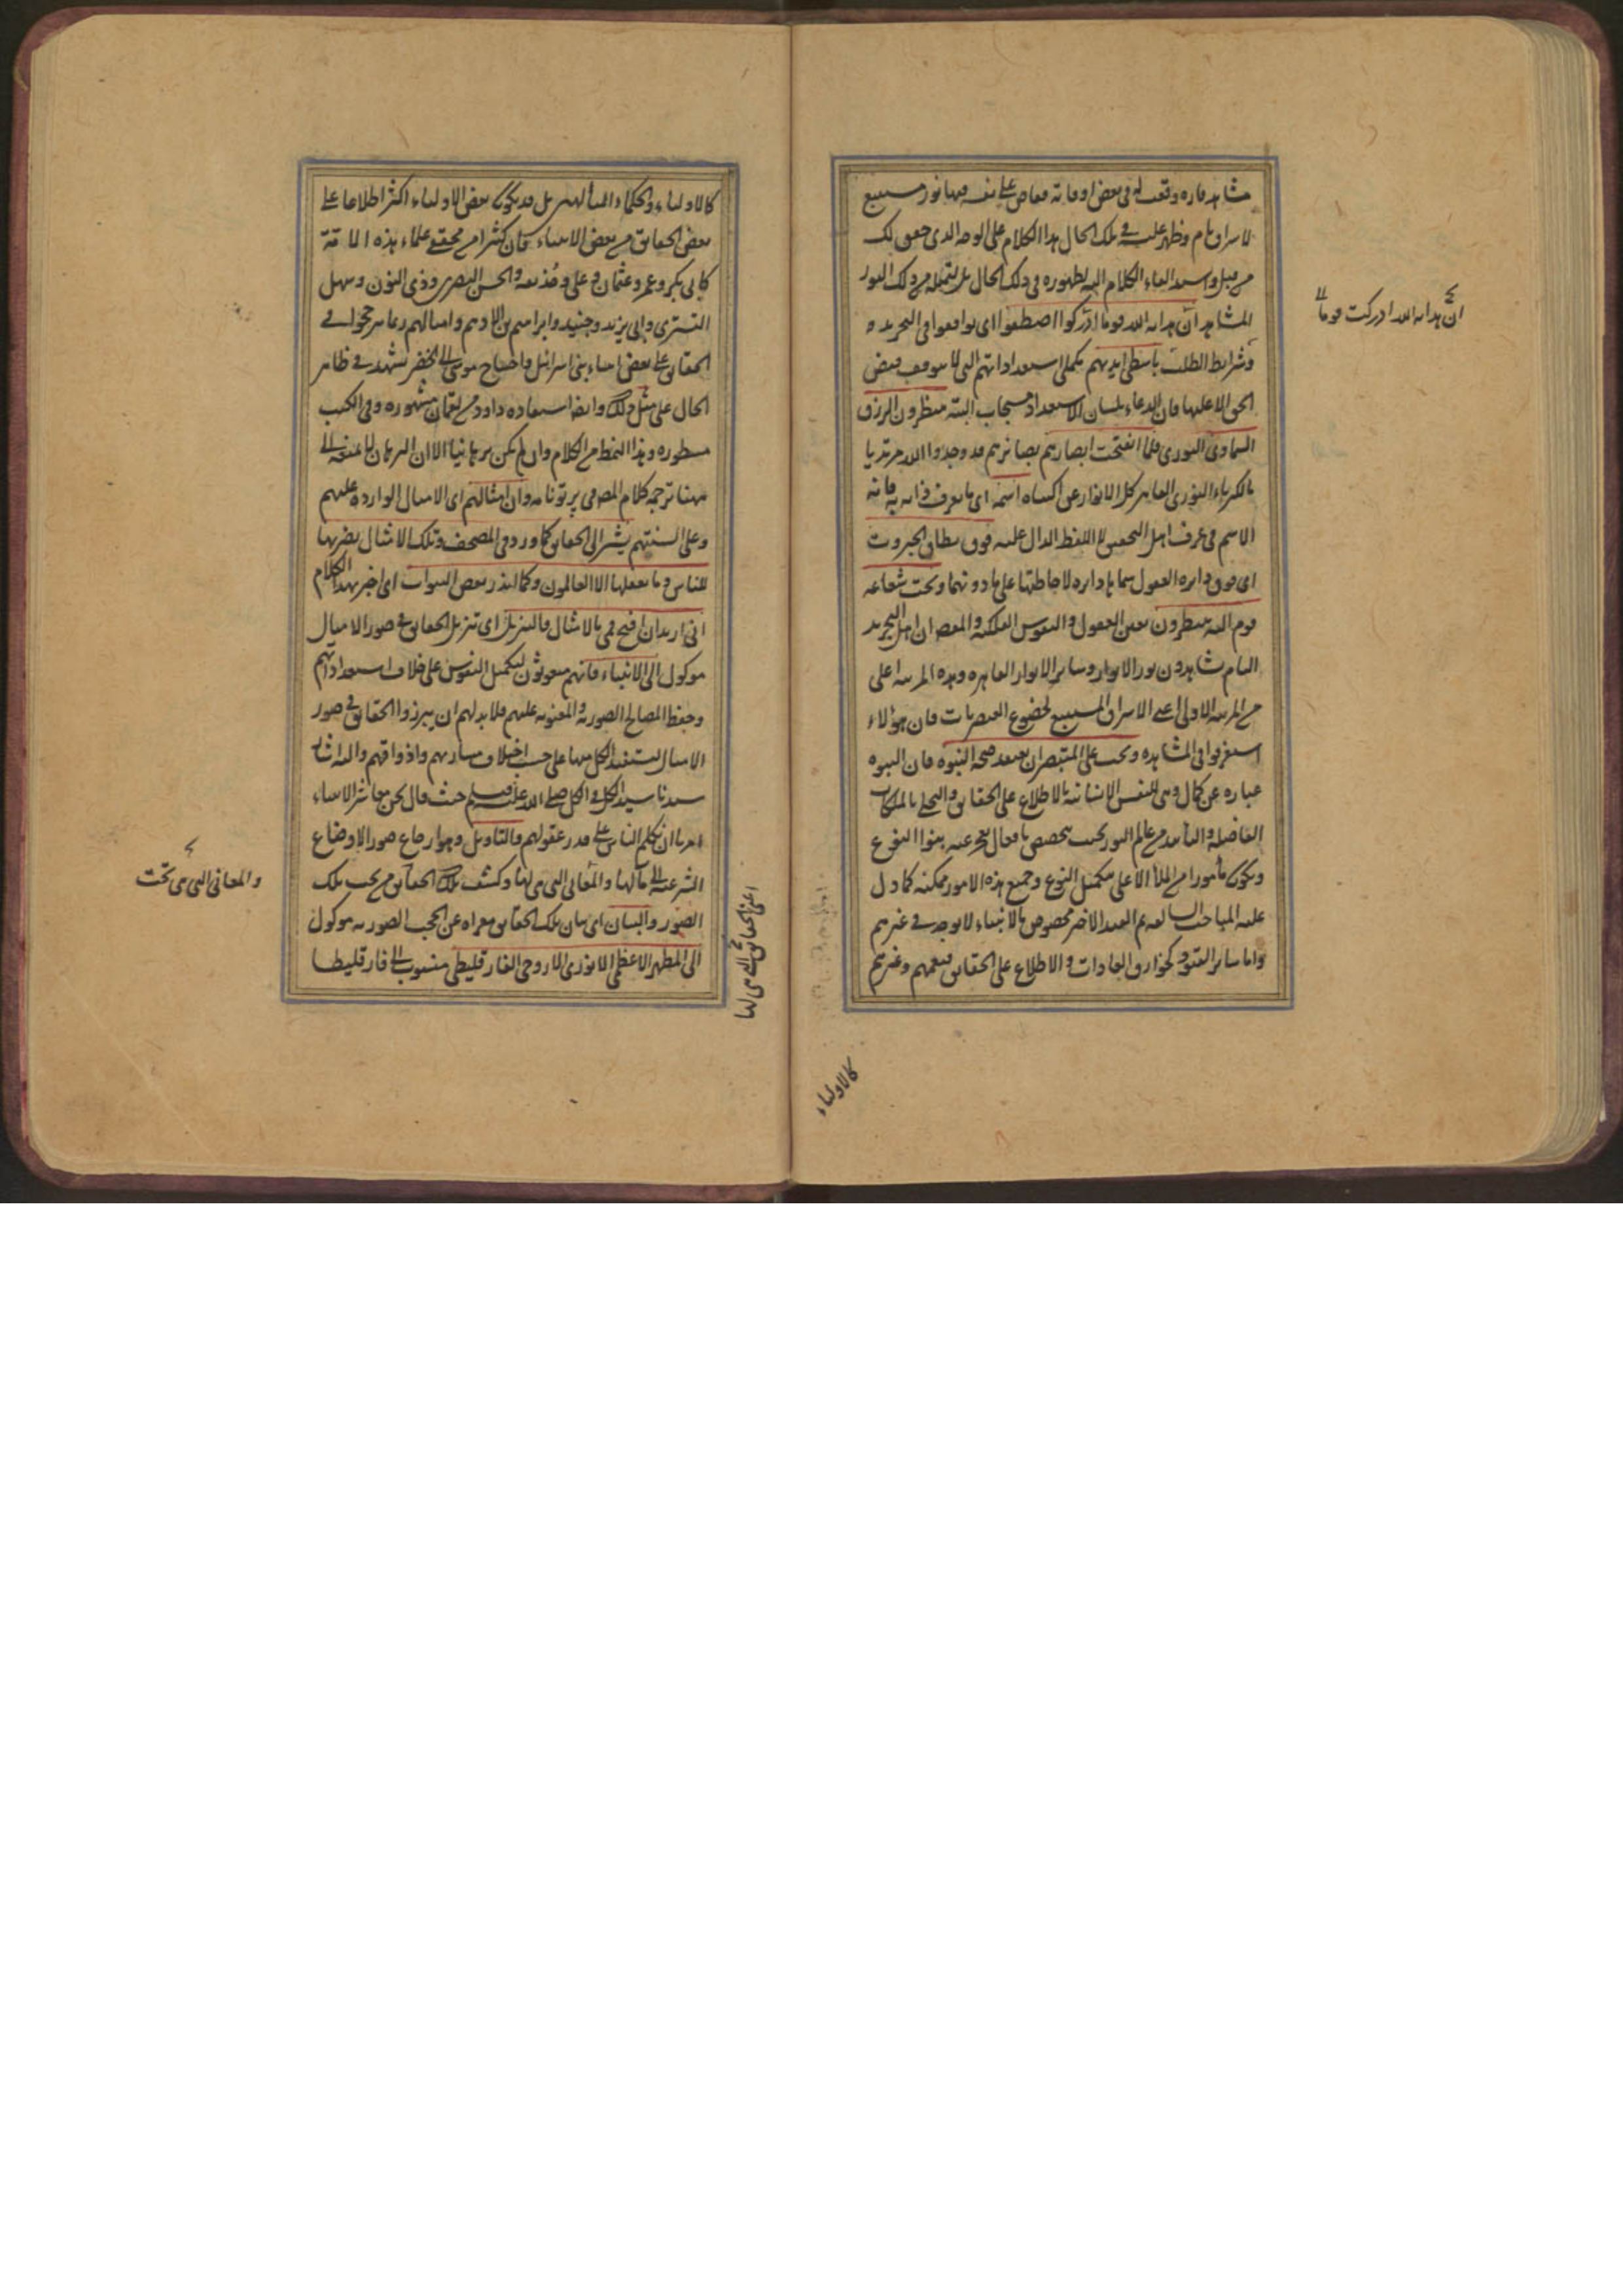 مشاهد فاره وقعت له فى بعض اوقاته فغاص على نفسه فيها نور مستتبع
لاشراق تام وظهر عليه فى تلك الحال هذا الكلام على الوجه الذى حقق لك
من قبل واستعد القاء الكلام اليه لظهوره فى ذلك الحال بل بتمثله من ذلك النور
المشاهد ان هداية الله قوما ادركوا اصطفوا اى توافقوا فى التجريد و
وشرايط الطلب باسطى ايديهم مكملى استعداداتهم التى لا يتوقف فيض
الحق الا عليها فان الدعاء بلسان الاستعداد مستجاب البتة منتظرون الرزق
السماوى النورى فلما انفتحت ابصارهم بصائرهم قد وجدوا الله مرتديا
بالكبرياء النورى القاهر كل الانوار عن اكتناه اسمه اى ما يعرف ذاته به فانه
الاسم فى عرف اهل التحقيق لا اللفظ الدال عليه فوق نطاق الجبروت
اى فوق دايرة العقول سماها دايرة لاحاطتها على ما دونها وتحت شعاعه
قوم اليه ينظرون يعنى العقول والنفوس الفلكية والمقصد ان اهل التجريد
التام يشاهدون نور الانوار وساير الانوار القاهره وهذه المرتبة اعلى
من المرتبة الاولى اعنى الاشراق المستتبع لخضوع العنصريات فان هؤلاء
استغرقوا فى المشاهده ويجب على المتبصر ان يعتقد صحة النبوه فان النبوه
عباره عن كمال وهى للنفس الانسانية بالاطلاع على الحقايق والتحلى بالملكات
الفاضله والتأييد من عالم النور بحيث يتخصص بافعال يعجز عنه بنوا النوع
ويكون مأمورا من الملأ الاعلى بتكميل النوع وجميع هذه الامور ممكنه كما دل
عليه المباحث السالفه ثم القيد الاخير مخصوص بالانبياء لا يوجد فى غيرهم
واما ساير القيود كخوارق العادات والاطلاع على الحقايق فيعمهم وغيرهم
كالاولياء
ان هداية الله ادركت قوما
كالاولياء والحكماء المتألهين بل قد يكون بعض الاولياء اكثر اطلاعا على
بعض الحقايق من بعض الانبياء كان كثيرا من محققى علماء هذه الامة
كابى بكر وعمر وعثمان وعلى وحذيفه والحسن البصرى وذى النون وسهل
التسترى وابى يزيد وجنيد وابراهيم بن الادهم وامثالهم رعا برجحوا فى
الحقايق على بعض انبياء بنى اسرائيل واحتياج موسى الى الخضر تشهد فى ظاهر
الحال على مثل ذلك وايضا استفاده داود من لقمان مشهوره وفى الكتب
مسطوره وهذا النمط من الكلام وان لم يكن برهانيا الا ان البرهان لا يمنعه
ههنا ترجمه كلام المص فى پرتونامه وان امثالهم اى الامثال الوارده عليهم
وعلى السنتهم يشير الى الحقايق كما ورد فى المصحف وتلك الامثال نضربها
للناس وما يعقلها الا العالمون وكما انذر بعض النبوات اى اخبر بهذا الكلام
انى اريد ان افتح فمى بالامثال فالتنزيل اى تنزيل الحقايق فى صور الامثال
موكول الى الانبياء فانهم مبعوثون لتكميل النفوس على خلاف استعداداتهم
وحفظ المصالح الصورية والمعنويه عليهم فلا بد لهم ان يبرزوا الحقايق فى صور
الامثال ليستفيد الكل منها على حسب اختلاف مشاربهم واذواقهم واليه اشار
سيدنا سيد الكل فى الكل صلى الله عليه وسلم حيث قال نحن معاشر الانبياء
امرنا ان نكلم الناس على قدر عقولهم والتاويل وهو ارجاع صور الاوضاع
الشرعية الى مآلها والمعانى التى هى لها وكشف تلك الحقايق من تحت تلك
الصور والبيان اى بيان تلك الحقايق معراه عن الحجب الصوريه موكول
الى المظهر الاعظم الانورى الاروحى الفارقليطى منسوب الى فارقليطا
والمعانى التى هى تحت
اعنى الحقايق التى هى لها